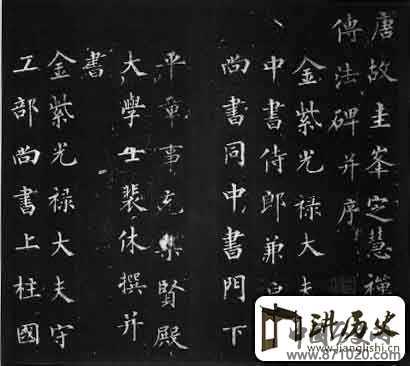 唐故圭峯定慧禪
傳法碑并序
金紫光禄大夫
中書侍郎兼
尚書同中書門下
平章事充集賢殿
大學士裴休撰并
書
金紫光禄大夫守
工部尚書上柱國
讲历史
www.jianglishi.cn
www.871020.com